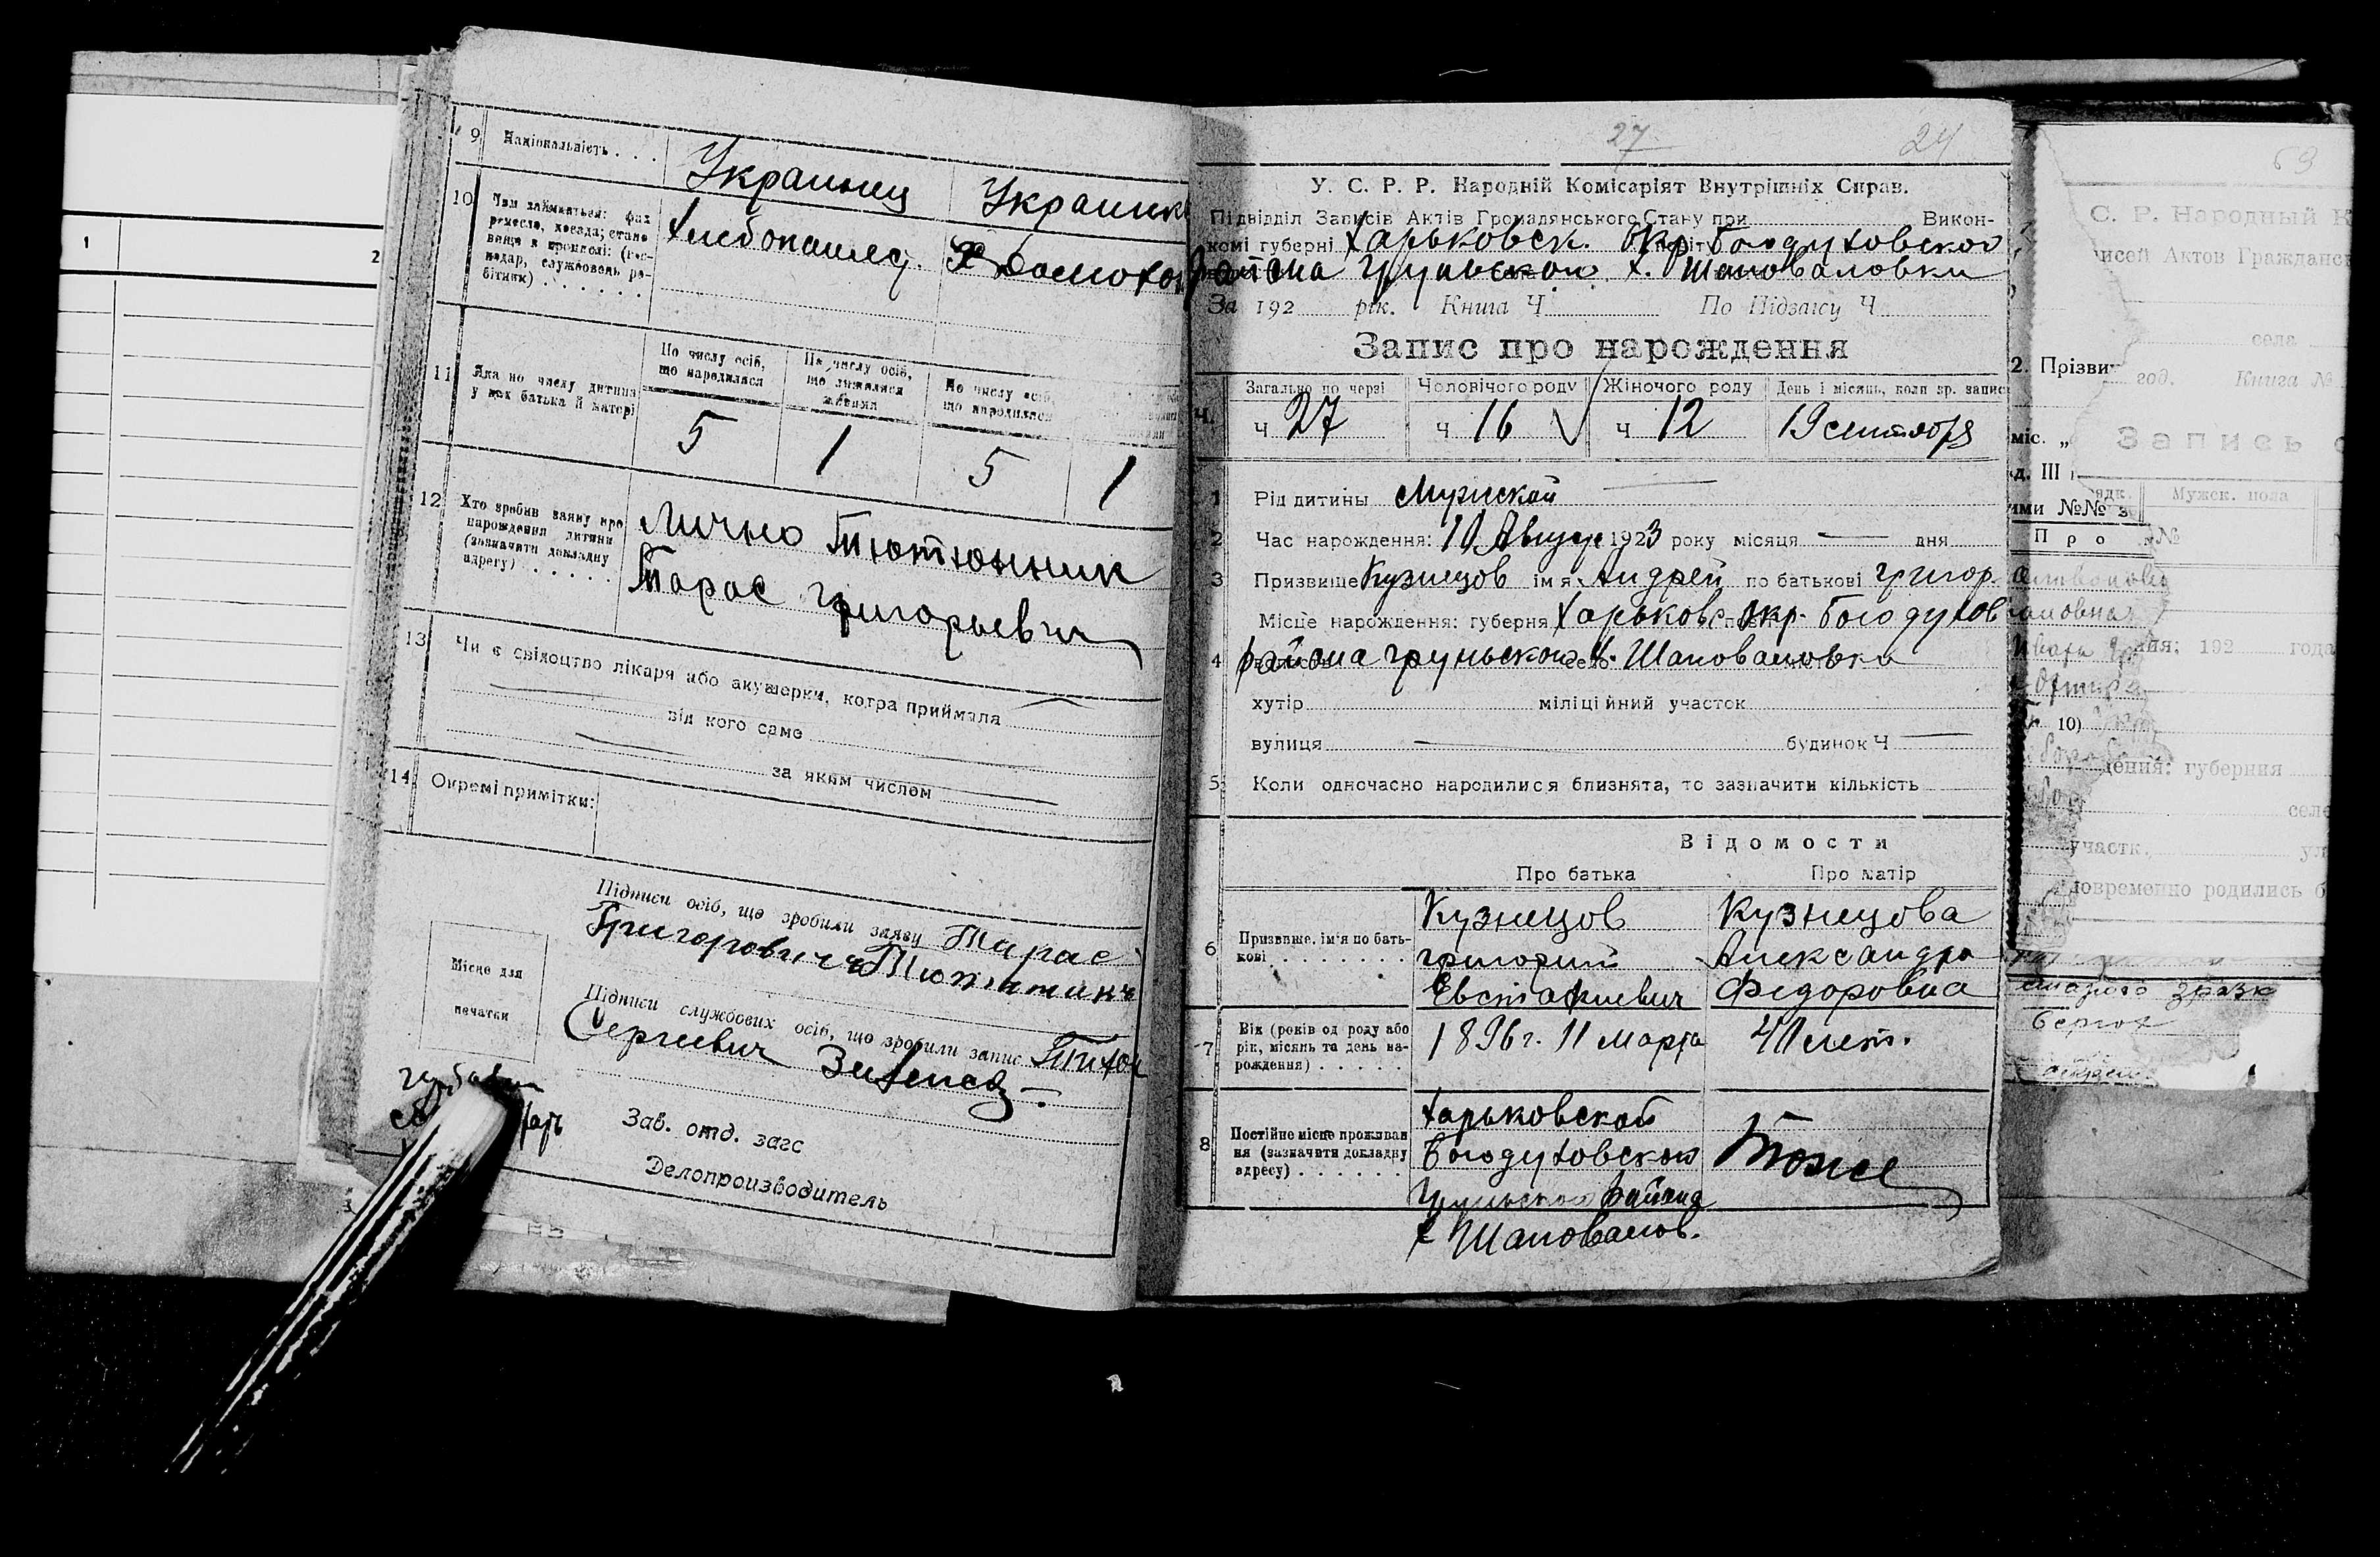 1
2
9 Національність . . . Украинец Украинк
10 Чим займається: фах
ремесло, посада; стано
вище в промислі: (гос-
подар, службовець ро-
бітник) . . . . . . .
Хлебопашец. Домохоз
11 Яка по числу дитина
у цих батька й матері
По числу осіб, що народилися
По числу осіб, що лишилися живими
По числу осіб, що народилися
5 1 5 1
12 Хто зробив заяву про
народження дитини
(зазначити докладну
адресу) . . . . .
Лично Тютюнник
Тарас Григорьевич
13 Чи є свідоцтво лікаря або акушерки, котра приймала
від кого саме
за яким числом
14 Окремі примітки:
Підписи осіб, що зробили заяву Тарас
Григоровичь Тютюнникъ
Місце для
печатки
Підписи службових осіб, що зробили запис Тихон
Сергиевич
Зав. отд. загс
Делопроизводитель
27 24
У. С. Р. Р. Народній Комісаріят Внутрішніх Справ.
Підвідділ Записів Актів Громадянського Стану при Викон-
комі губерні Харьковск. Окр. Богодуховского
района Груньского х. Шаповаловки
За 192 рік. Книга Ч По Підзагсу Ч
Запис про народження
Загально по черзі Чоловічого роду Жіночого роду День і місяць, коли зр. запис
Ч. ч 27 ч 16 ч 12 19 сентября
1 Рід дитины Мужской
2 Час нарождення: 10 Август 1923 року місяця дня
3 Призвище Кузнецов імя Андрей по батькові Григор.
Місце нарождення: губерня Харьковс Окр. Богодухов
4 района Груньского х. Шаповаловка
хутір міліційний участок
вулиця будинок Ч
5 Коли одночасно народилися близнята, то зазначити кількість
Відомости
Про батька Про матір
6 Призвище, ім'я по бать-
кові . . . . . . .
Кузнецов Кузнецова
Григорий Александра
Евстафиевич Федоровна
7 Вік (років од роду або
рік, місяць та день на-
рождення) . . . . .
1896 г. 11 марта 40 лет.
8 Постійне місце проживан
ня (зазначити докладну
адресу) . . . . . .
Харьковской
Богодуховской Тоже
Груньского района
х Шаповалов.
63
С. Р. Народный К
исей Актов Гражданс
села
2. Прізви
год. Книга №
міс. „
Запись о
Мужск. пола
ими №№ з
Про №
ния: 192 года
10)
дения: губерния
село
участк. ул
новременно родились б